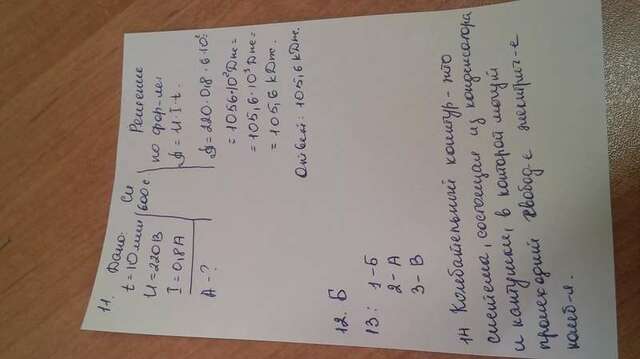 11. Дано: Си Решение
t = 10 мин 600 с по фор-ле:
U = 220 В A = U·I·t.
I = 0,8 А A = 220·0,8·6·10²=
A - ? = 1056·10² Дж =
= 105,6·10³ Дж =
= 105,6 кДж.
Ответ: 105,6 кДж.
12. Б
13: 1 – Б
2 – А
3 – В
14 Колебательный контур – это
система, состоящая из конденсатора
и катушки, в которой могут
происходит свобод-е электрич-е
колеб-я.